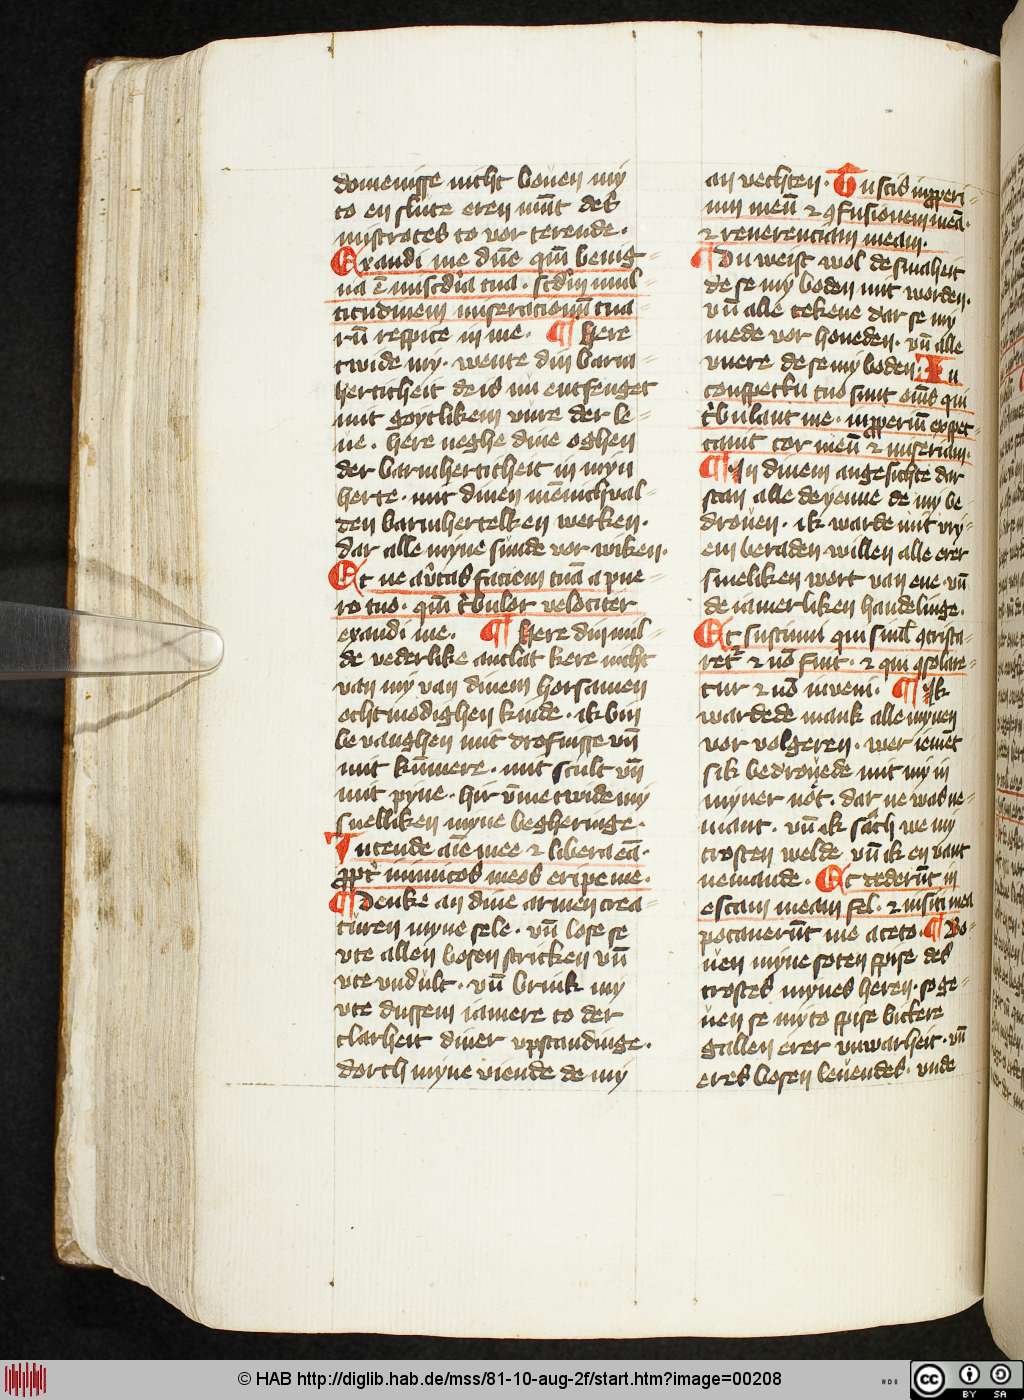 domenisse nicht boven my
to en slute eren munt des
mistrotes to vor terende.
Exaudi me dn̄e qm̄ benig-
na ē misc̄dia tua. scd̄m mul-
titudinem miseracionū tua
rū respice in me. ¶ Here
twide my. wente din barm-
herticheit de is nu entfenget
mit gotliken vure der le-
ve. here neghe dine oghen
der barmherticheit in myn
herte. mit dinen mēnichval-
den barmhertelken werken.
dar alle myne sunde vor wiken.
Et ne av̄tas faciem tuā a pue-
ro tuo. qm̄ tͥbulor velociter
exaudi me. ¶ Here din mil-
de vederlike antlat kere nicht
van my van dinem horsamen
ochtmodighen kinde. ik bin
bevanghen mit drofnisse vn̄
mit kum̄ere. mit scult vn̄
mit pyne. hir ūme twide my
snelliken myne begheringe.
Intende aīe mee ⁊ libera eā.
ꝓpt̄ inimicos meos eripe me.
¶ Denke an dine armen crea-
turen myne sele. vn̄ lose se
vte allen bosen stricken vn̄
vte undult. vn̄ brink my
vte dussem iamere to der
clarheit diner upstandinge.
dorch myne viende de my
an vechten. Tu scis inꝓperi-
um meū ⁊ ꝯfusionem meā.
⁊ reverenciam meam.
¶ Du weist wol de smaheit
de se my boden mit worden.
vn̄ alle tekene dar se my
mede vor honeden. vn̄ alle
unere de se my boden. In
conspectu tuo sunt om̄s qui
tͥbulant me. inꝓperiū expec-
tavit cor meū ⁊ miseriam.
¶ In dinem angesichte dar
stan alle de yenne de my be-
droven. ik warde mit vry-
em beraden willen alle erer
smeliken wort van ene. vn̄
de iamerliken handelinge.
Et sustinui qui simul ꝯtrista-
ret̄ ⁊ nō fuit. ⁊ qui ꝯsolare-
tur ⁊ nō inveni. ¶ Ik
wardede mank alle mynen
vor volgeren. wer iemēt
sik bedrovede mit my in
myner not. dar ne was ne-
mant. vn̄ ik sach we my
trosten welde vn̄ ik en vant
nemande. Et dederūt in
escam meam fel. ⁊ in siti mea
potaverūt me aceto. ¶ Bo-
ven myne soten spise des
trostes mynes heren. so ge-
ven se my to spise bittere
gallen erer unwarheit. vn̄
eres bosen levendes. unde
© HAB http://diglib.hab.de/mss/81-10-aug-2f/start.htm?image=00208
cc BY SA